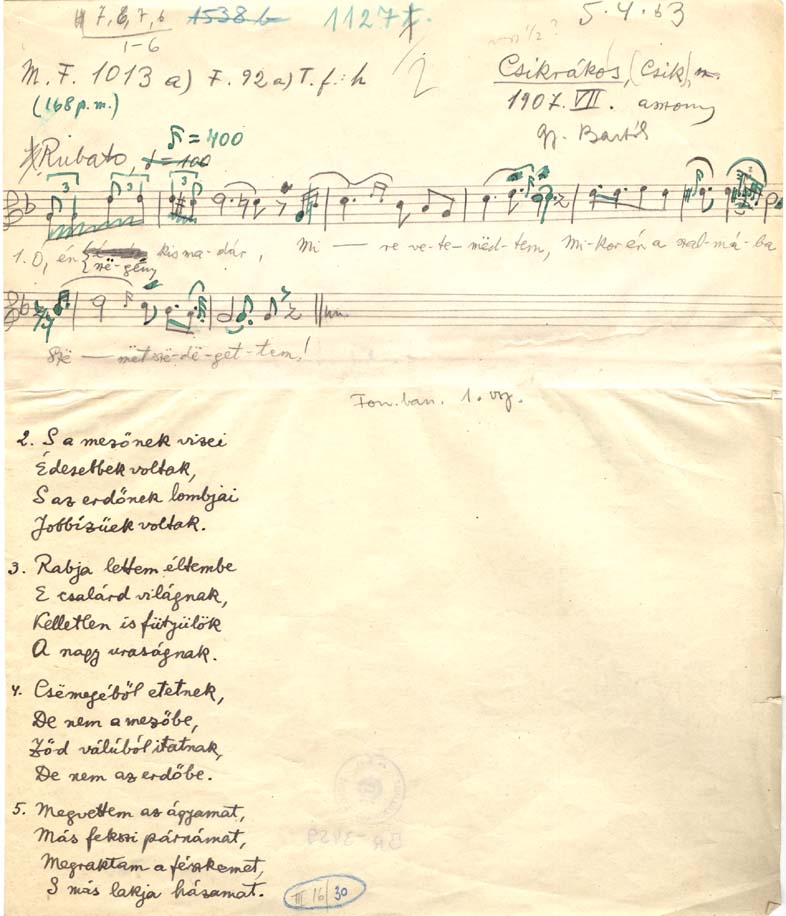 7, 8, 7, 6 1538 b 1127 5.4.63
1-6
M. F. 1013 a) F. 92 a) T. f.: h 2 Csikrákos, (Csik) m.
(168 p. m.) 1907. VII. asszony
gy. Bartók
= 400
Rubato, = 100
3 3 3
1. O, én kis madár, Mi — re ve-te-mëd-tem, Mi-kor én a szal-má-ba
szë-gény
Szë — mët szë-dë-get-tem!
Fon. ban. 1. vsz.
2. S a mezőnek vizei
Édesebbek voltak,
S az erdőnek lombjai
Jobbízüek voltak.
3. Rabja lettem éltembe
E csalárd világnak,
Kelletlen is fütyülök
A nagy uraságnak.
4. Csëmegéből etetnek,
De nem a mezőbe,
Ződ válúból itatnak,
De nem az erdőbe.
5. Megvettem az ágyamat,
Más fekszi párnámat,
Megraktam a fészkemet,
S más lakja házamat.
III 16/30